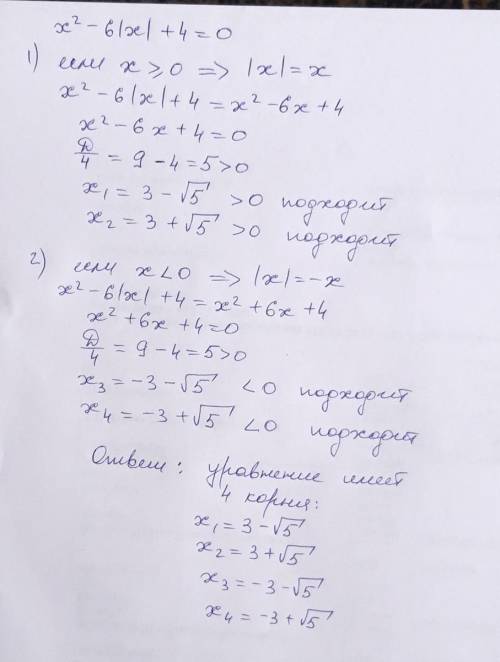 x² - 6|x| + 4 = 0
1) если x ⩾ 0 => |x| = x
x² - 6|x| + 4 = x² - 6x + 4
x² - 6x + 4 = 0
D/4 = 9 - 4 = 5 > 0
x₁ = 3 - √5 > 0 подходит
x₂ = 3 + √5 > 0 подходит
2) если x < 0 => |x| = -x
x² - 6|x| + 4 = x² + 6x + 4
x² + 6x + 4 = 0
D/4 = 9 - 4 = 5 > 0
x₃ = -3 - √5 < 0 подходит
x₄ = -3 + √5 < 0 подходит
Ответ: уравнение имеет
4 корня:
x₁ = 3 - √5
x₂ = 3 + √5
x₃ = -3 - √5
x₄ = -3 + √5